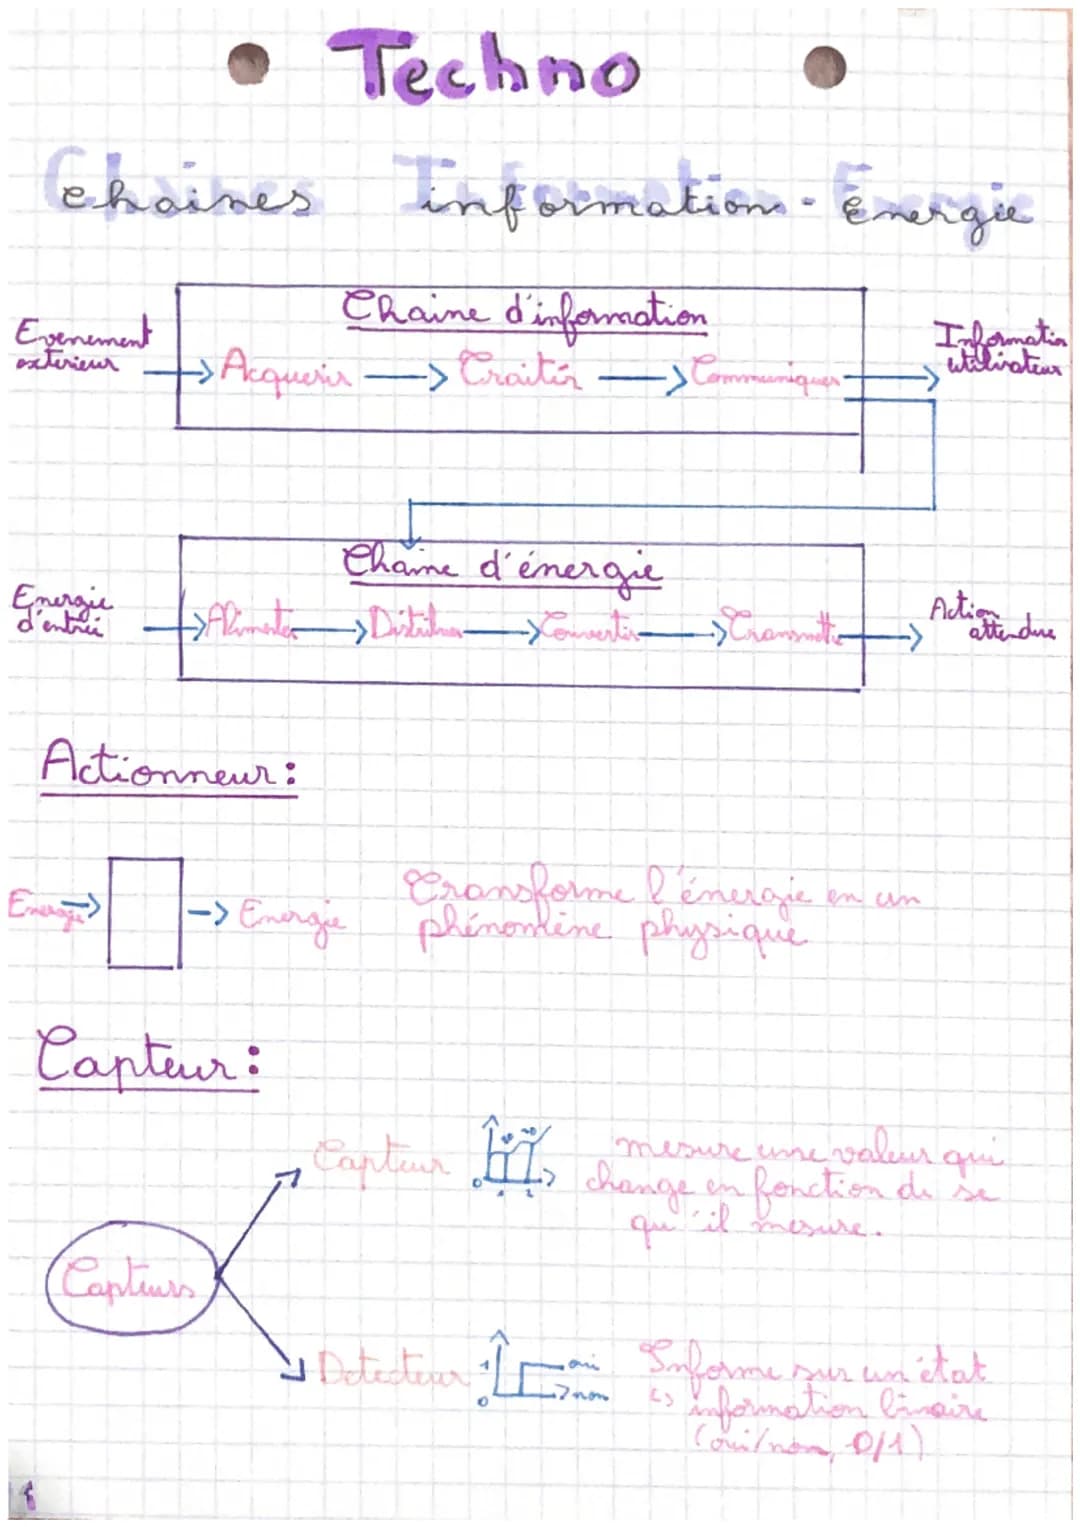 Techno
Chaines Information - Énergie
chaines information - énergie
Chaine d'information
Evenement
exterieur
Acquerir Traiter Communiquer
Information
utilisateur
Chaine d'énergie
Energie
d'entrée
Alimenter Distribuer Convertir Transmettre
Action
attendue
Actionneur :
Energie Energie
Transforme l'énergie en un
phénomène physique
Capteur :
Capteur
0 1 2
mesure une valeur qui
change en fonction de se
qu'il mesure.
Capteurs
Detecteur
1 oui
0 non
Informe sur un état
↳ information binaire
(oui/non, 0/1)